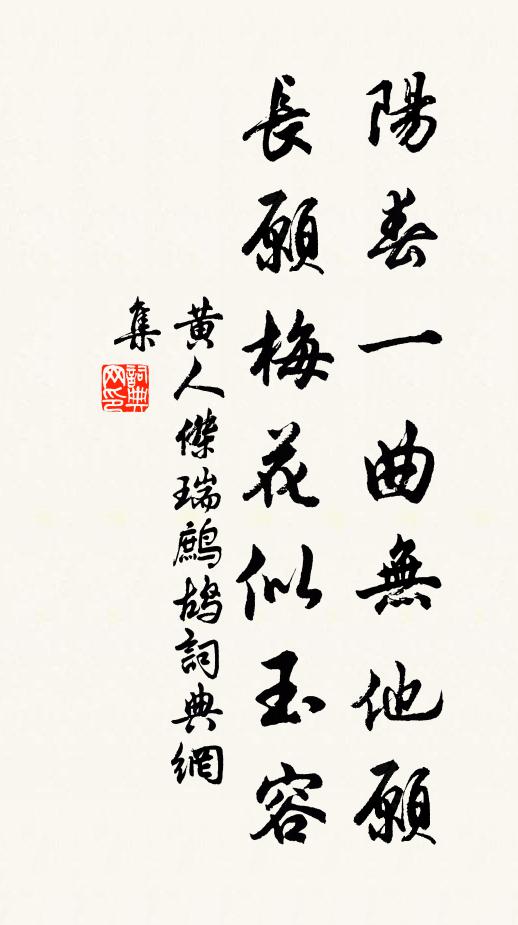 陽春一曲無他願
長願梅花似玉容
黄人傑瑞鷓鴣詞典網
集
詞典
网印